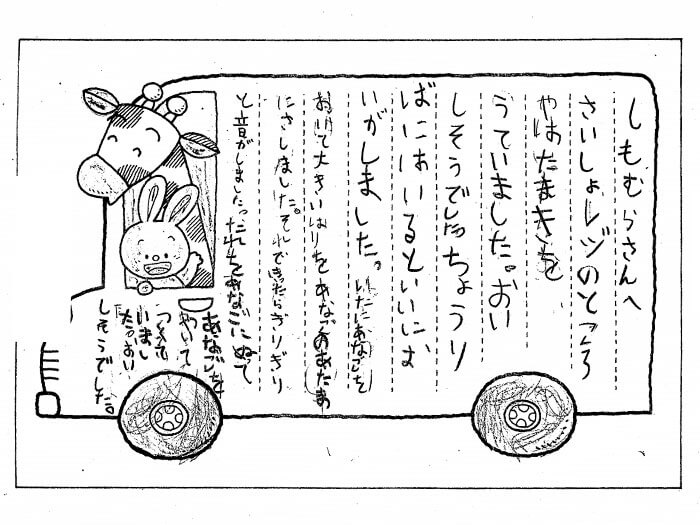 しもむらさんへ
さいしょレジのところ
やはたまきを
うていました。おい
しそうでしたちょうり
ばにはいるといいにお
いがしました。いたにあなごを
おいて大きいはりをあなごのあたま
にさしました。それできったらぎりぎり
と音がしました。たれをあなごにぬって
あなごを
やいて
つくって
いまし
た。おい
しそうでした。